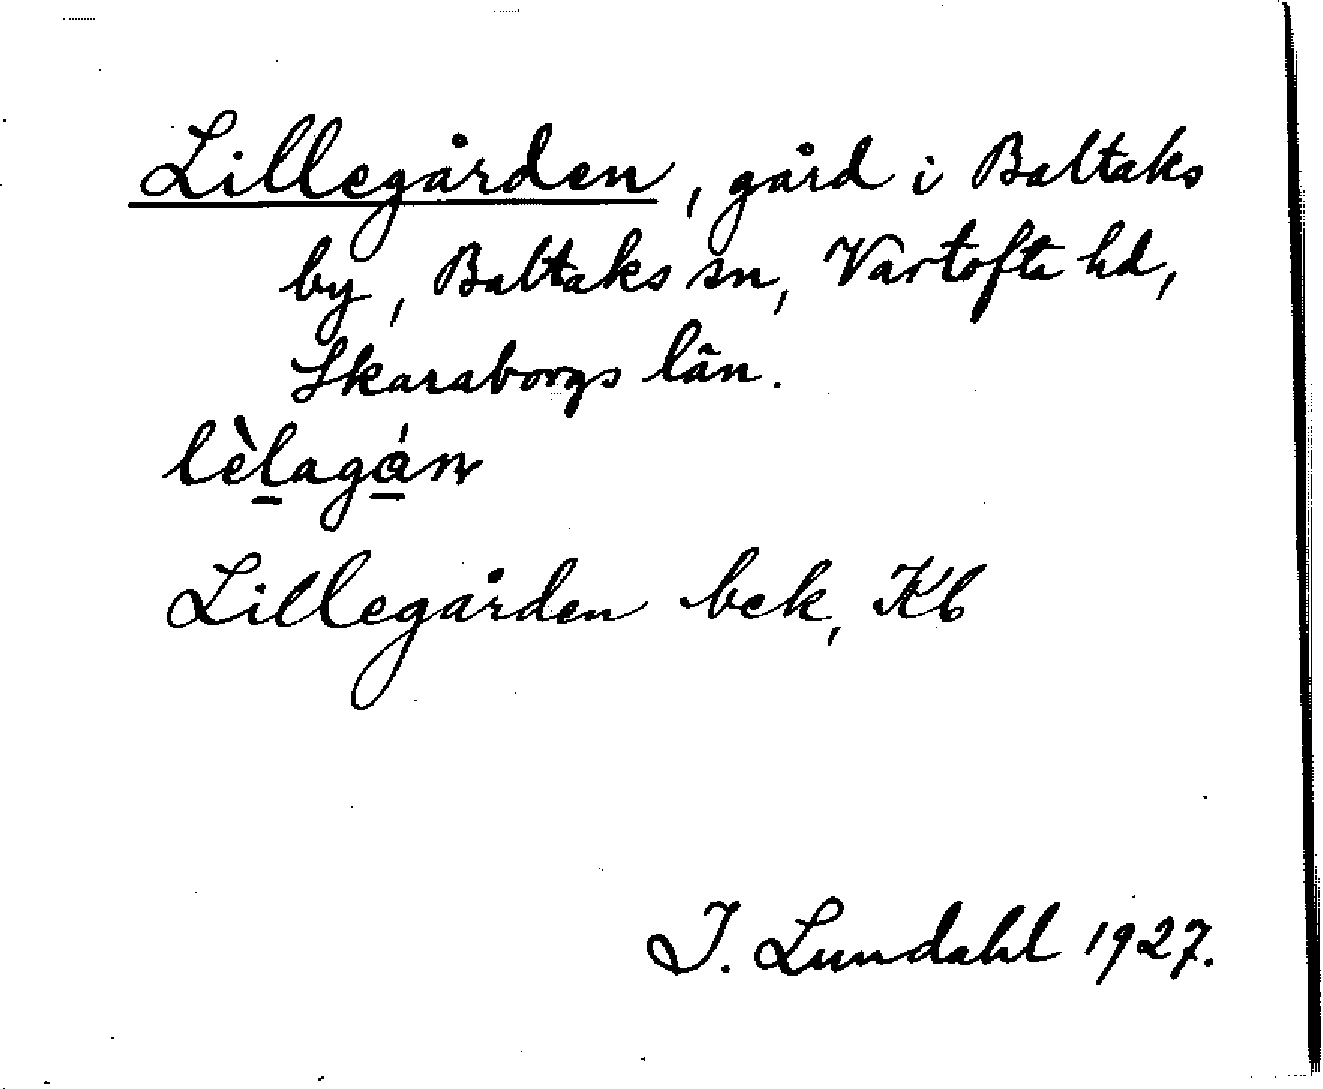 Lillegården, gård i Baltaks
by, Baltaks sn, Vartofta hd,
Skaraborgs län.
lèlagán
Lillegården bek, Kb
I. Lundahl 1927.